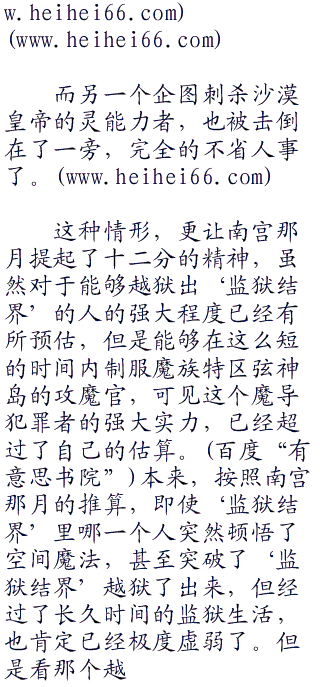 w.heihei66.com)
(www.heihei66.com)
而另一个企图刺杀沙漠
皇帝的灵能力者，也被击倒
在了一旁，完全的不省人事
了。(www.heihei66.com)
这种情形，更让南宫那
月提起了十二分的精神，虽
然对于能够越狱出‘监狱结
界’的人的强大程度已经有
所预估，但是能够在这么短
的时间内制服魔族特区弦神
岛的攻魔官，可见这个魔导
犯罪者的强大实力，已经超
过了自己的估算。(百度“有
意思书院”)本来，按照南宫
那月的推算，即使‘监狱结
界’里哪一个人突然顿悟了
空间魔法，甚至突破了‘监
狱结界’越狱了出来，但经
过了长久时间的监狱生活，
也肯定已经极度虚弱了。但
是看那个越